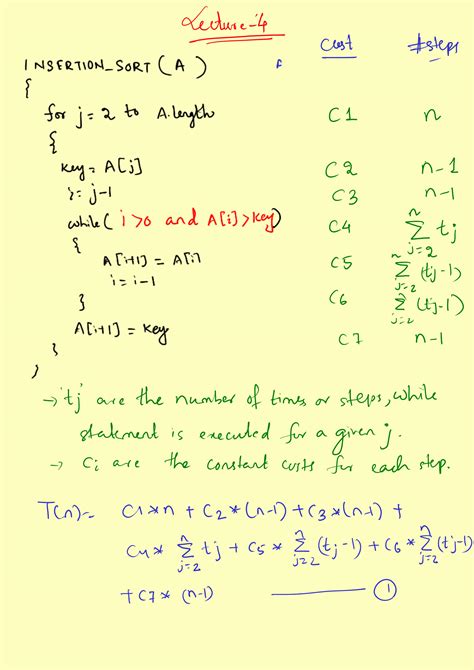 Lecture-4
Cost #steps
INSERTION_SORT(A)
{
for j=2 to A.length C1 n
{
key = A[j] C2 n-1
i = j-1 C3 n-1
while( i>0 and A[i]>key) C4 n∑j=2 tj
{
A[i+1] = A[i] C5 n∑j=2 (tj-1)
i = i-1 C6 n∑j=2 (tj-1)
}
A[i+1] = key C7 n-1
}
}
→ 'tj' are the number of times or steps, while
statement is executed for a given j.
→ Ci are the constant costs for each step.
T(n) = C1*n + C2*(n-1) + C3*(n-1) +
C4* n∑j=2 tj + C5* n∑j=2 (tj-1) + C6* n∑j=2 (tj-1)
+ C7* (n-1) ——— ①